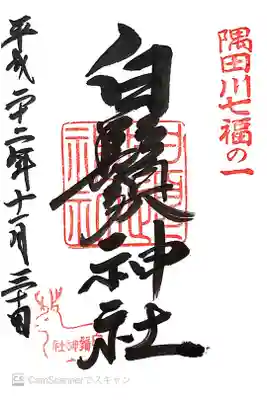 隅田川七福の一
白鬚神社
平成二十二年十一月三十日
CS CamScannerでスキャン